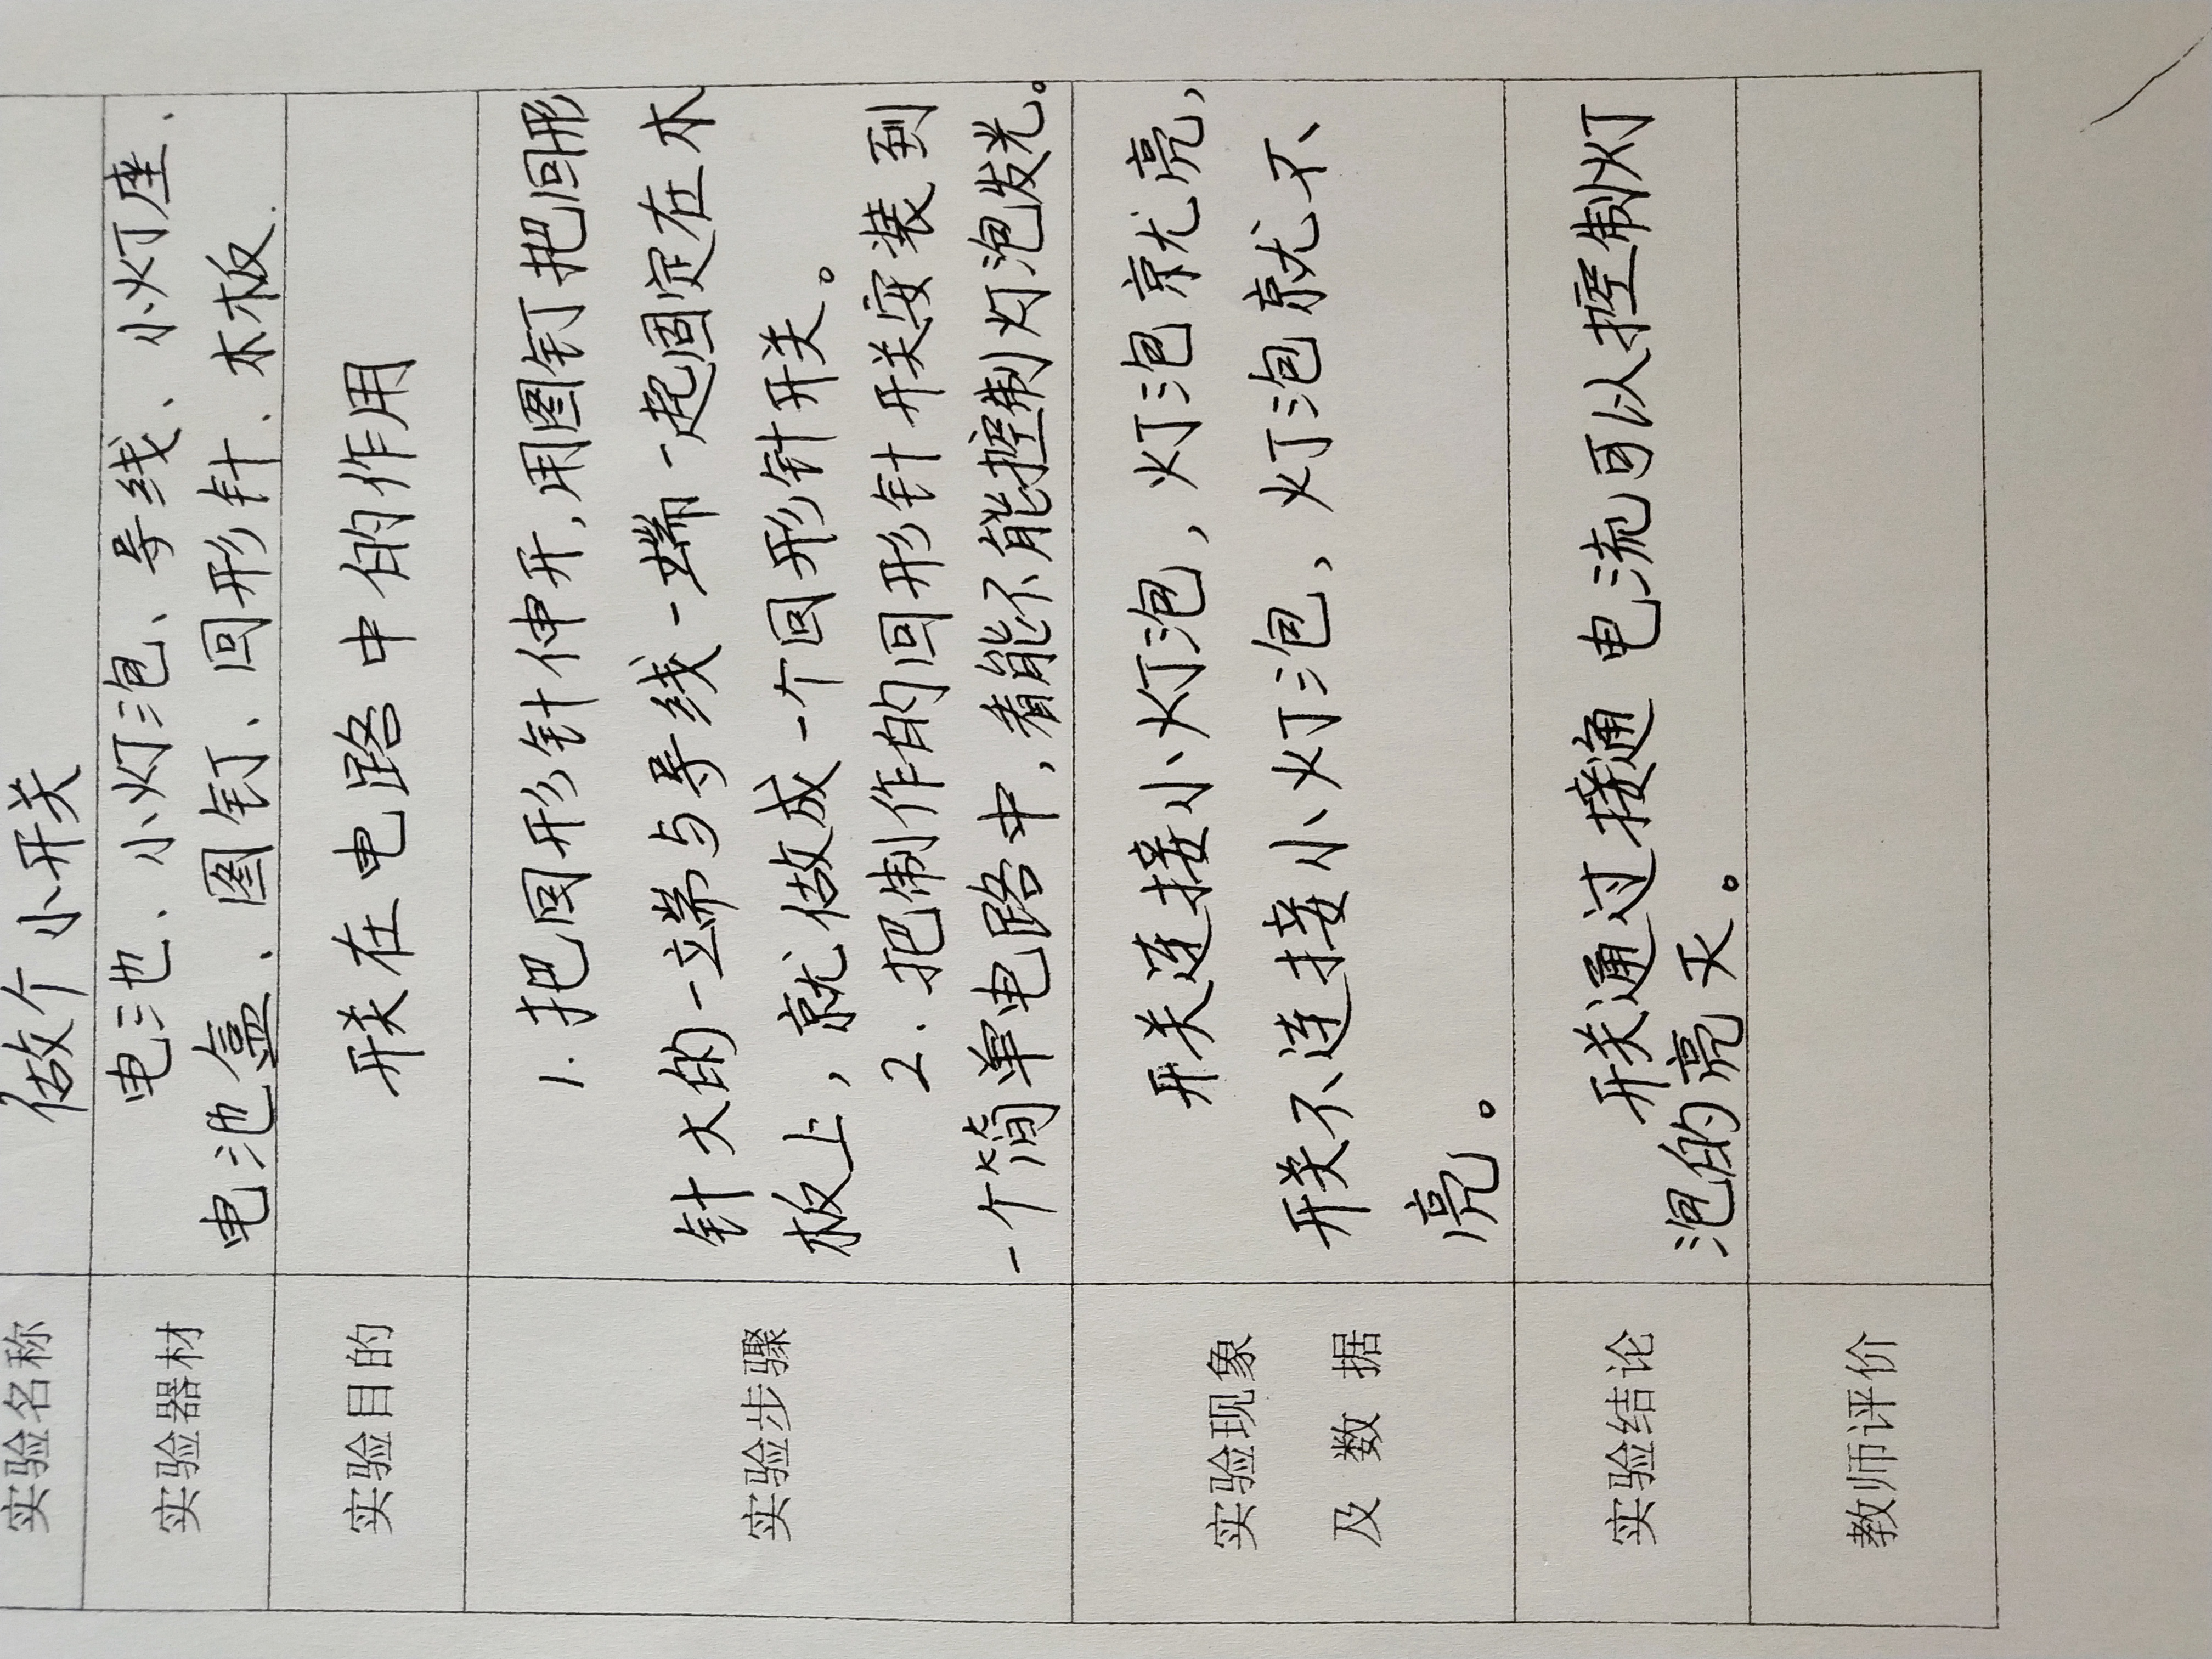 实验名称 做个小开关
实验器材 电池、小灯泡、导线、小灯座、
电池盒、图钉、回形针、木板.
实验目的 开关在电路中的作用
实验步骤
1.把回形针伸开,用图钉把回形
针大的一端与导线一端一起固定在木
板上,就做成一个回形针开关。
2.把制作的回形针开关安装到
一个简单电路中,看能不能控制灯泡发光。
实验现象
及数据
开关连接小灯泡,灯泡就亮,
开关不连接小灯泡,灯泡就不
亮。
实验结论
开关通过接通电流可以控制灯
泡的亮灭。
教师评价